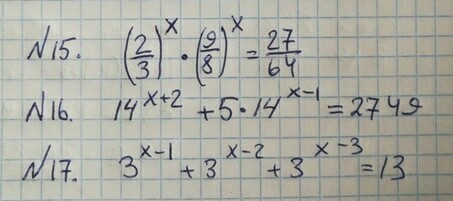 №15. (2/3)^x · (9/8)^x = 27/64
№16. 14^(x+2) + 5·14^(x-1) = 2749
№17. 3^(x-1) + 3^(x-2) + 3^(x-3) = 13